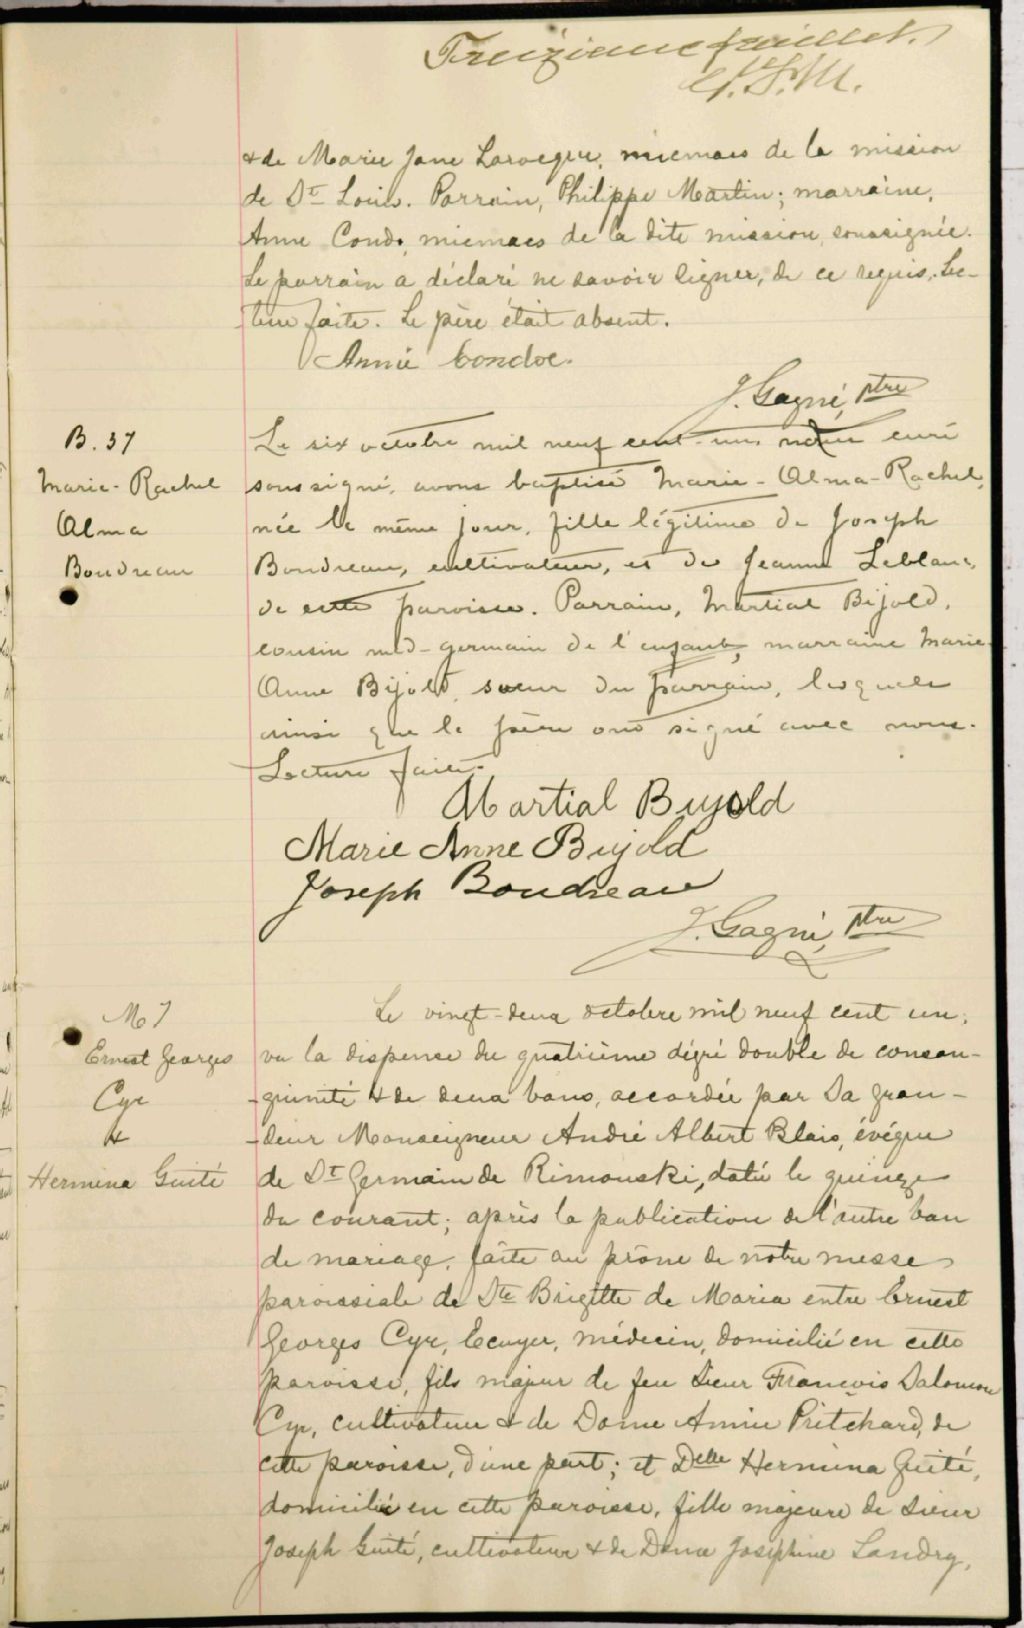 Treizieme feuillet.
& de Marie Jane micmacs de la mission
de St Louis. Parrain, Philippe Martin; marraine,
Anne Condo, micmacs de la dite mission, soussignée.
Le parrain a déclaré ne savoir signer, de ce requis. Lec-
ture faite. Le père était absent.
Annie Condoe.
J. Gagné, ptre
B. 37
Marie-Rachel
Alma
Boudreau
Le six octobre mil neuf cent-un, curé
soussigné, avons baptisé Marie-Alma-Rachel,
née le même jour, fille légitime de Joseph
Boudreau, cultivateur, et de Jeanne Leblanc,
de cette paroisse. Parrain, Martial Bijold,
cousin germain de l'enfant, marraine Marie-
Anne Bijold, soeur du parrain, lesquels
ainsi que le père ont signé avec nous.
Lecture faite.
Martial Bujold
Marie Anne Bujold
Joseph Boudreau
J. Gagné, ptre
M 7
Ernest Georges
Cyr
&
Hermina Guité
Le vingt-deux octobre mil neuf cent un,
vu la dispense du quatrième dégré double de consan-
-guinité & de deux bans, accordée par Sa Gran-
-deur Monseigneur André Albert Blais, évêque
de St Germain de Rimouski, datée le quinze
du courant; après la publication de l'autre ban
de mariage, faite au prône de notre messe
paroissiale de Ste Brigitte de Maria entre Ernest
Georges Cyr, Ecuyer, médecin, domicilié en cette
paroisse, fils majeur de feu Sieur François Salomon
Cyr, cultivateur & de Dame Annie Pritchard, de
cette paroisse, d'une part; et Delle Hermina Guité,
domiciliée en cette paroisse, fille majeure de Sieur
Joseph Guité, cultivateur & de Dame Josephine Landry,